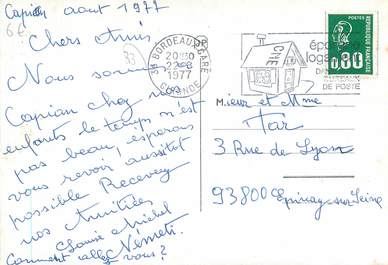 Capian août 1977
6€
Chers Amis
33
Nous sommes
Capian chez nos
enfants le temps n'est
pas beau, espérons
vous revoir aussitôt
possible Recevez
nos Amitiés
Louise Michel
Németi.
Comment allez vous?
33 BORDEAUX GARE
20H30
1977
GIRONDE
CNE
épargne
logement
DANS
BUREAUX
DE POSTE
POSTES
REPUBLIQUE FRANÇAISE
0,80
Mieur et Mme
Tar
3 Rue de Lyon
93800 Epinay-sur-Seine